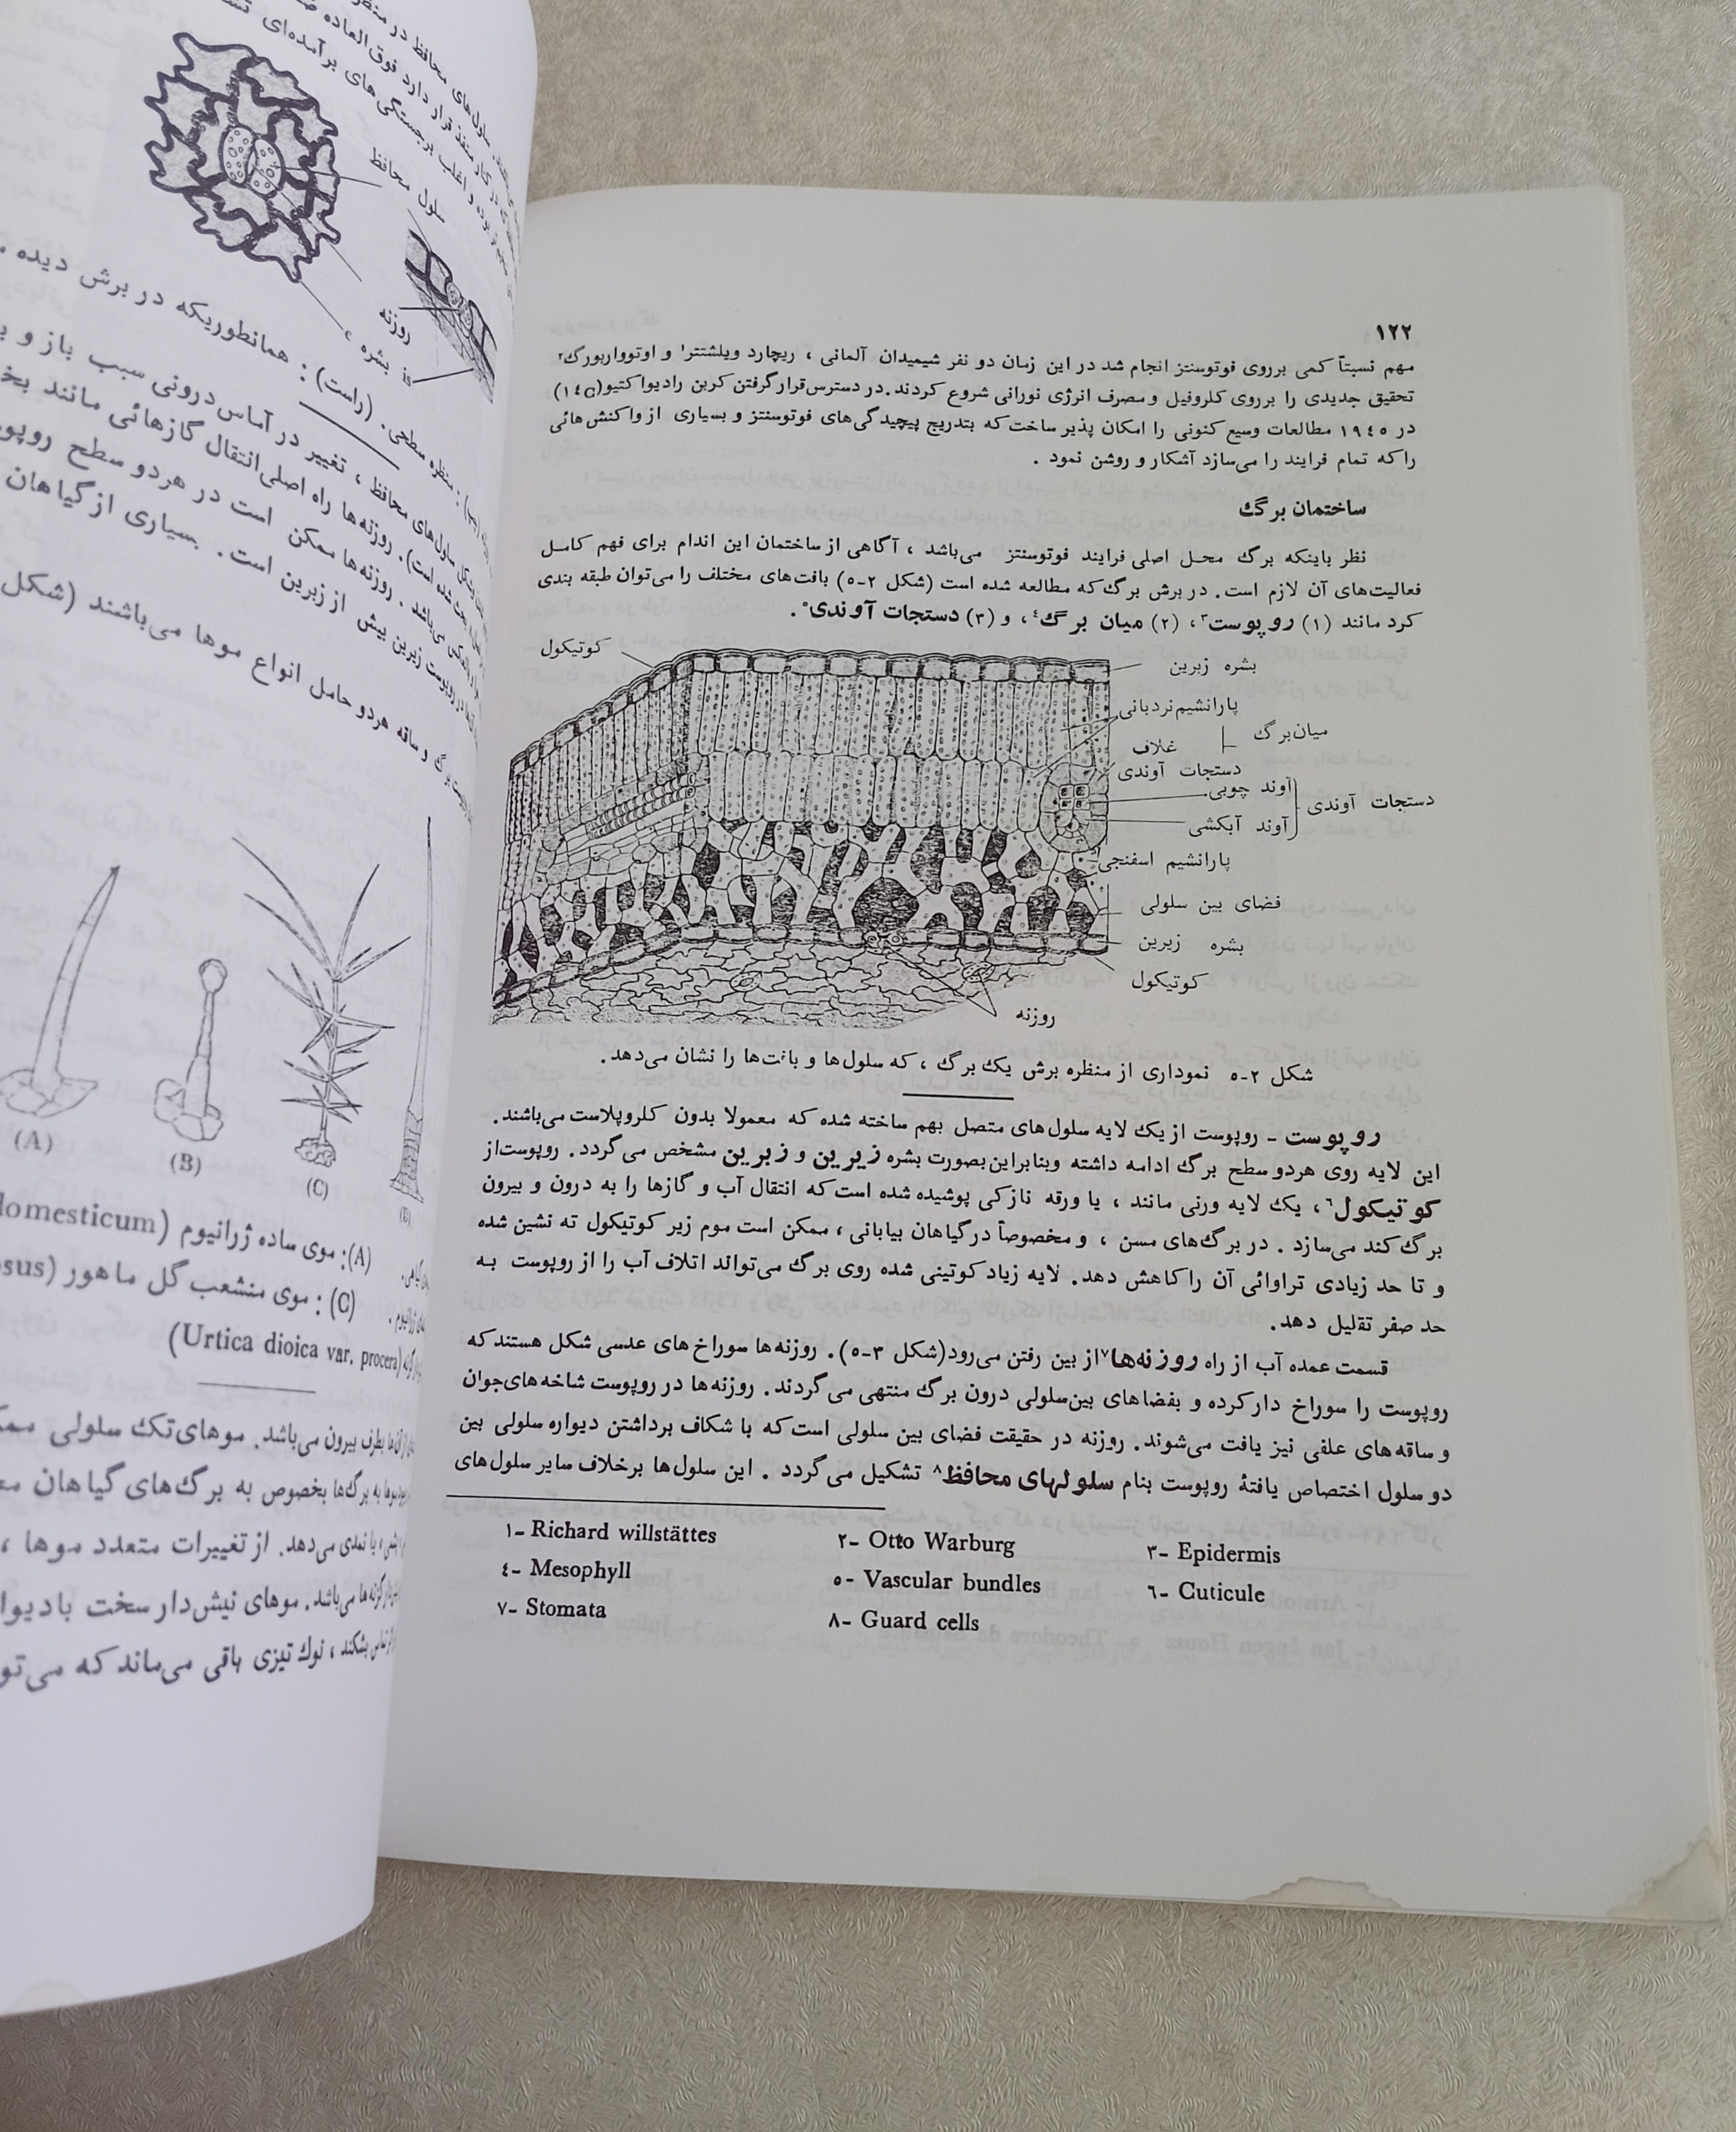 ۱۲۲
مهم نسبتاً کمی برروی فوتوسنتز انجام شد در این زمان دو نفر شیمیدان آلمانی ، ریچارد ویلشتتر۱ و اوتوواربورگ۲
تحقیق جدیدی را برروی کلروفیل و مصرف انرژی نورانی شروع کردند. در دسترس قرار گرفتن کربن رادیواکتیو(۱٤C)
در ۱۹٤٥ مطالعات وسیع کنونی را امکان پذیر ساخت که بتدریج پیچیدگی‌های فوتوسنتز و بسیاری از واکنش هائی
را که تمام فرایند را می‌سازد آشکار و روشن نمود .
ساختمان برگ
نظر باینکه برگ محل اصلی فرایند فوتوسنتز می‌باشد ، آگاهی از ساختمان این اندام برای فهم کامل
فعالیت‌های آن لازم است. در برش برگ که مطالعه شده است (شکل ۲-٥) بافت‌های مختلف را می‌توان طبقه بندی
کرد مانند (۱) روپوست۳، (۲) میان برگ٤، و (۳) دستجات آوندی٥.
کوتیکول
بشره زبرین
پارانشیم نردبانی
میان‌برگ
غلاف
دستجات آوندی
آوند چوبی
دستجات آوندی
آوند آبکشی
پارانشیم اسفنجی
فضای بین سلولی
بشره زیرین
کوتیکول
روزنه
شکل ۲-٥ نموداری از منظره برش یک برگ ، که سلول‌ها و بافت‌ها را نشان می‌دهد.
روپوست - روپوست از یک لایه سلول‌های متصل بهم ساخته شده که معمولا بدون کلروپلاست می‌باشند.
این لایه روی هردو سطح برگ ادامه داشته وبنابراین بصورت بشره زیرین و زبرین مشخص می‌گردد. روپوست از
کوتیکول٦، یک لایه ورنی مانند ، یا ورقه نازکی پوشیده شده است که انتقال آب و گازها را به درون و بیرون
برگ کند می‌سازد . در برگ‌های مسن ، و مخصوصاً در گیاهان بیابانی ، ممکن است موم زیر کوتیکول ته نشین شده
و تا حد زیادی تراوائی آن را کاهش دهد. لایه زیاد کوتینی شده روی برگ می‌تواند اتلاف آب را از روپوست به
حد صفر تقلیل دهد.
قسمت عمده آب از راه روزنه‌ها۷ از بین رفتن می‌رود(شکل ۳-٥). روزنه‌ها سوراخ های عدسی شکل هستند که
روپوست را سوراخ دار کرده و بفضاهای بین‌سلولی درون برگ منتهی می‌گردند. روزنه‌ها در روپوست شاخه های‌جوان
و ساقه های علفی نیز یافت می‌شوند. روزنه در حقیقت فضای بین سلولی است که با شکاف برداشتن دیواره سلولی بین
دو سلول اختصاص یافتهٔ روپوست بنام سلولهای محافظ۸ تشکیل می‌گردد . این سلول‌ها برخلاف سایر سلول‌های
۱- Richard willstättes ۲- Otto Warburg ۳- Epidermis
٤- Mesophyll ٥- Vascular bundles ٦- Cuticule
۷- Stomata ۸- Guard cells
سلول محافظ
روزنه
بشره
منظره سطحی. (راست) : همانطوریکه در برش دیده
سلول‌های محافظ ، تغییر در آماس درونی سبب باز و
روزنه‌ها راه اصلی انتقال گازهائی مانند
می‌باشد . روزنه‌ها ممکن است در هردو سطح
زبرین بیش از زیرین است. بسیاری از گیاهان
برگ و ساقه هردو حامل انواع موها می‌باشند (شکل
(A)
(B)
(C)
(A): موی ساده ژرانیوم (domesticum
(C) : موی منشعب گل ماهور (
(Urtica dioica var. procera)
بطرف بیرون می‌باشد. موهای‌تک سلولی
موها به برگ‌ها بخصوص به برگ‌های گیاهان
یا نمدی می‌دهد. از تغییرات متعدد موها ،
می‌باشد. موهای نیش‌دار سخت با
بشکند ، نوک تیزی باقی می‌ماند که